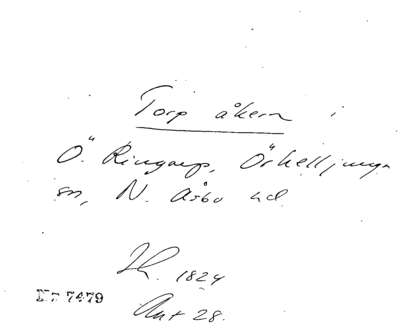 Torp åkern i
Ö. Ringarp, Örkelljunga
sn, N. Åsbo hd
Sk. 1824
Ant 28.
Nr 7479